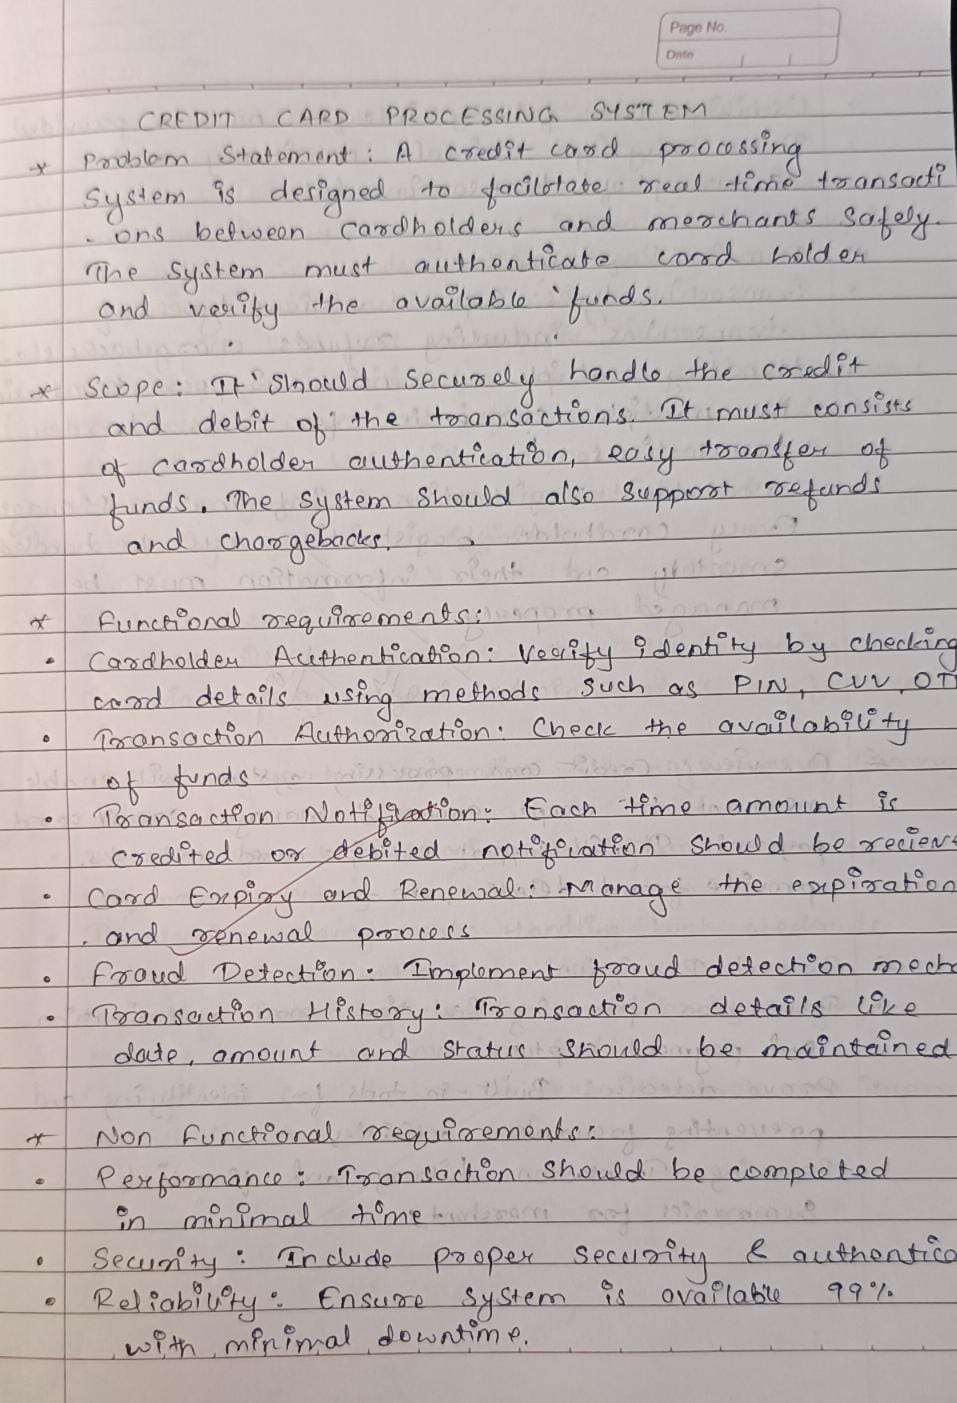 Page No.
Date
CREDIT CARD PROCESSING SYSTEM
* Problem Statement : A credit card processing
system is designed to facilitate real time transacti
ons between cardholders and merchants safely.
The system must authenticate card holder
and verify the available funds.
* Scope : It should securely handle the credit
and debit of the transactions. It must consists
of cardholder authentication, easy transfer of
funds. The system should also support refunds
and chargebacks.
* Functional requirements :
• Cardholder Authentication : Verify identity by checking
card details using methods such as PIN, CVV,
• Transaction Authorization : Check the availability
of funds
• Transaction Notification : Each time amount is
credited or debited notification should be
• Card Expiry and Renewal : Manage the expiration
and renewal process
• Fraud Detection : Implement fraud detection mech
• Transaction History : Transaction details like
date, amount and status should be maintained
* Non Functional requirements :
• Performance : Transaction should be completed
in minimal time
• Security : Include proper security & authentica
• Reliability : Ensure system is available 99%
with minimal downtime.